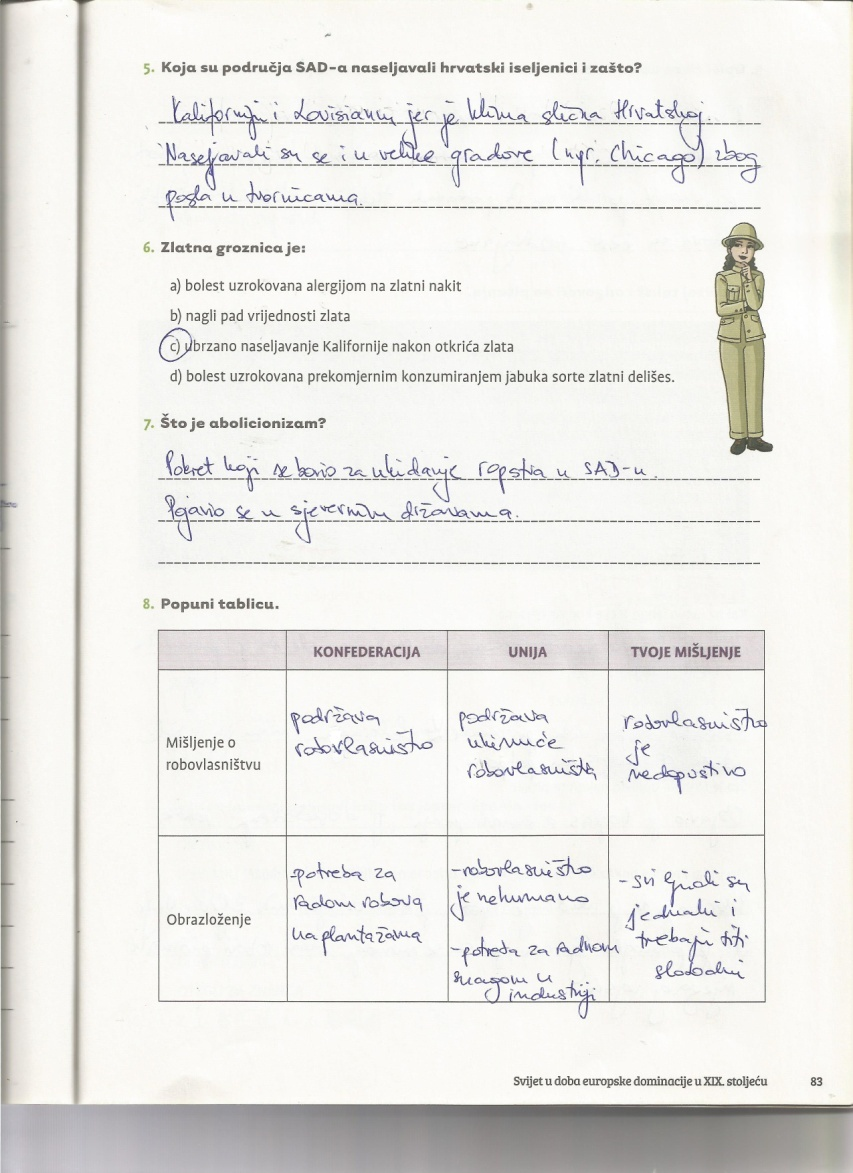 5. Koja su područja SAD-a naseljavali hrvatski iseljenici i zašto?
Kaliforniju i Lovisianu jer je klima slična Hrvatskoj.
Naseljavali su se i u velike gradove (npr. Chicago) zbog
posla u tvornicama.
6. Zlatna groznica je:
a) bolest uzrokovana alergijom na zlatni nakit
b) nagli pad vrijednosti zlata
c) ubrzano naseljavanje Kalifornije nakon otkrića zlata
d) bolest uzrokovana prekomjernim konzumiranjem jabuka sorte zlatni delišes.
7. Što je abolicionizam?
Pokret koji se borio za ukidanje ropstva u SAD-u.
Pojavio se u sjevernim državama.
8. Popuni tablicu.
KONFEDERACIJA UNIJA TVOJE MIŠLJENJE
Mišljenje o
robovlasništvu
podržava
robovlasništvo
podržava
ukinuće
robovlasništva
robovlasništvo
je
nedopustivo
Obrazloženje
-potreba za
radom robova
na plantažama
-robovlasništvo
je nehumano
-potreba za radnom
snagom u
industriji
-svi ljudi su
jednaki i
trebaju biti
slobodni
Svijet u doba europske dominacije u XIX. stoljeću 83